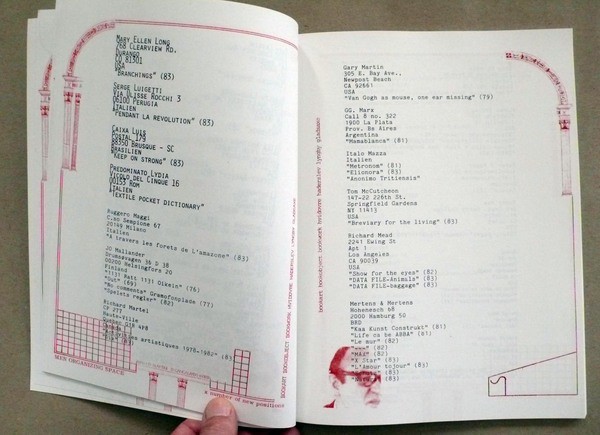 MARY ELLEN LONG
768 CLEARVIEW RD.
DURANGO
CO 81301
USA
"BRANCHINGS" (83)
SERGE LUIGETTI
VIA ULISSE ROCCHI 3
06100 PERUGIA
ITALIEN
"PENDANT LA REVOLUTION" (83)
CAIXA LUIS
POSTAL 179
88350 BRUSQUE - SC
BRASILIEN
"KEEP ON STRONG" (83)
PREDOMINATO LYDIA
VICOLO DEL CINQUE 16
00153 ROM
ITALIEN
"TEXTILE POCKET DICTIONARY"
Ruggero Maggi
C.so Sempione 67
20149 Milano
Italien
"A travers les forets de L'amazone" (83)
JO Mallander
Drumsövägen 36 D 38
00200 Helsingfors 20
Finland
(76)
"Out" (69)
"No comments" Gramofonplade (77)
"Spelets regler" (82)
Richard Martel
CP 277
Haute-Ville
G1R 4P8
artistiques 1978-1982" (83)
MEN ORGANIZING SPACE
a number of new positions
BOOKART BOOKOBJECT BOOKWORK HVIDOVRE HADERSLEV LYNGBY GLADSAXE
Gary Martin
305 E. Bay Ave.,
Newpost Beach
CA 92661
USA
"Van Gogh as mouse, one ear missing" (79)
GG. Marx
Call 8 no. 322
1900 La Plata
Prov. Bs Aires
Argentina
"Mamablanca" (81)
Italo Mazza
Italien
"Metronom" (81)
"Elionora" (83)
"Anonimo Tritiensia"
Tom McCutcheon
147-22 226th St.
Springfield Gardens
NY 11413
USA
"Breviary for the living" (83)
Richard Mead
2241 Ewing St
Apt 1
Los Angeles
CA 90039
USA
"Show for the eyes" (82)
"DATA FILE-Animals" (83)
"DATA FILE-baggage" (83)
Mertens & Mertens
Hohenesch 68
2000 Hamburg 50
BRD
"Kaa Kunst Construkt" (81)
"Life ca be ABBA" (81)
"Le mur" (82)
(82)
"MAX" (82)
"X Star" (83)
"L'Amour tojour" (83)
(83)
(83)
bookart bookobject bookwork hvidovre haderslev lyngby gladsaxe